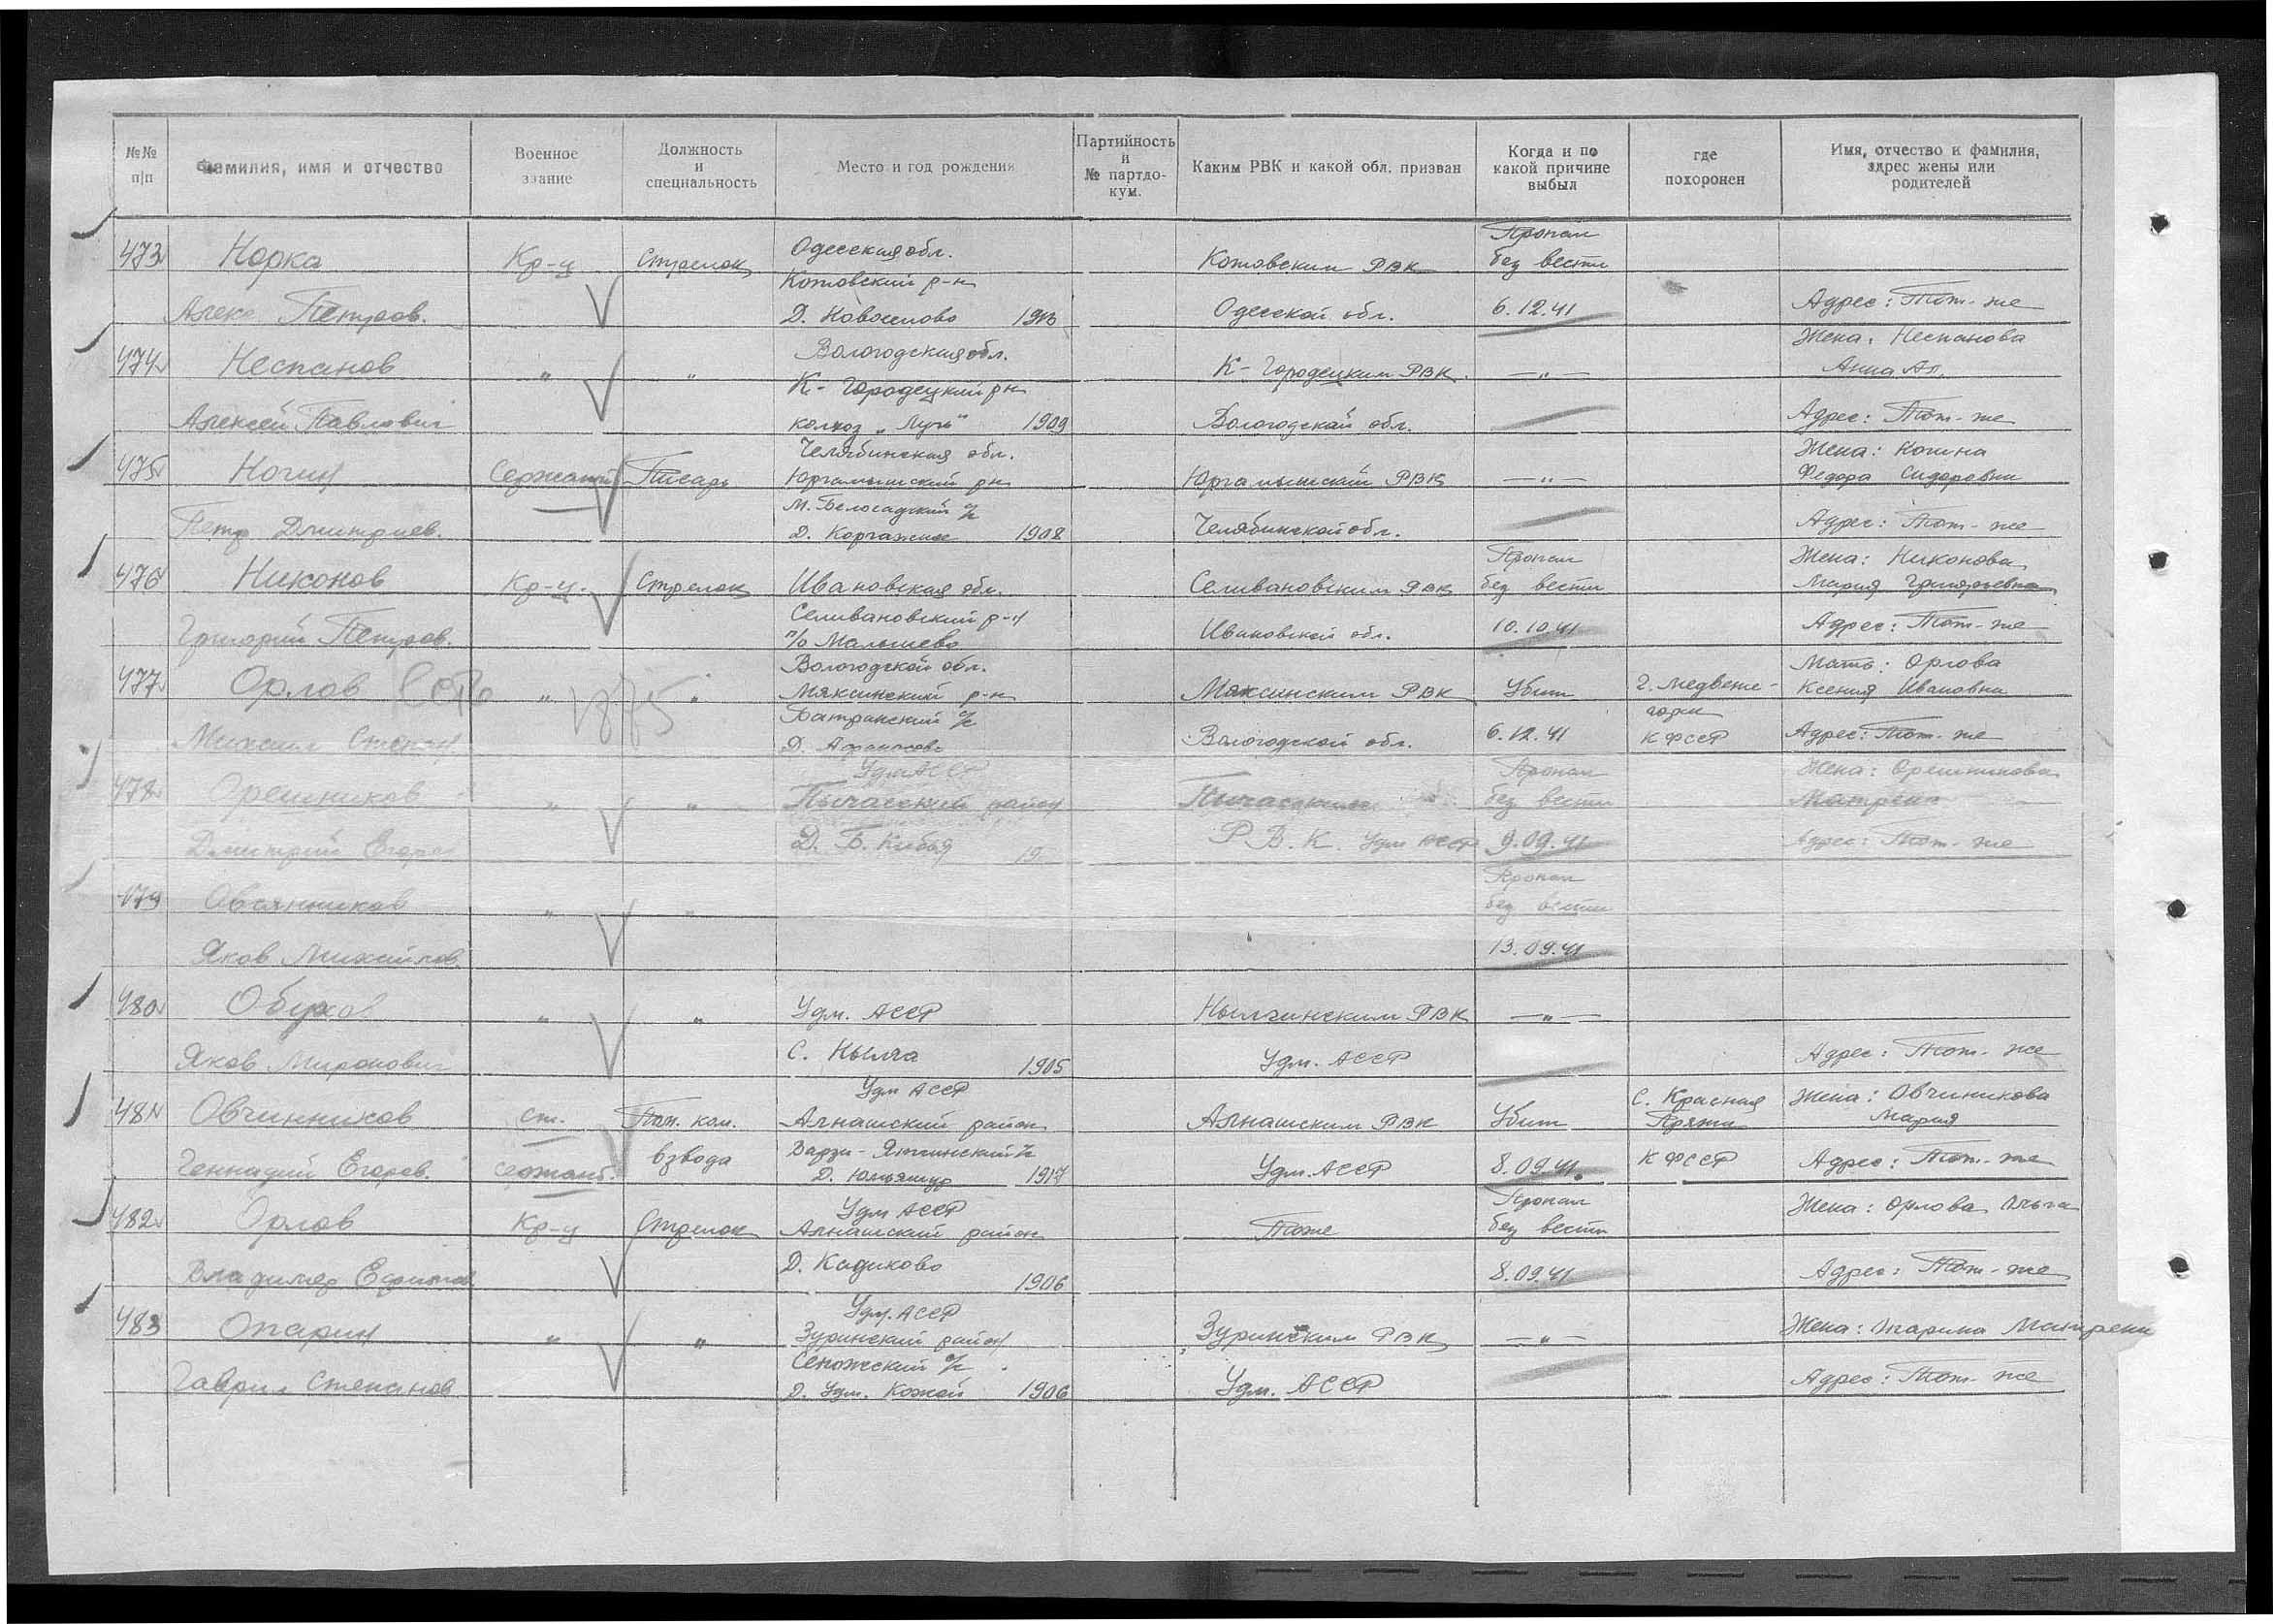 №№ п|п
Фамилия, имя и отчество
Военное звание
Должность и специальность
Место и год рождения
Партийность и № партдокум.
Каким РВК и какой обл. призван
Когда и по какой причине выбыл
где похоронен
Имя, отчество и фамилия, адрес жены или родителей
473 Норка Кр-ц Стрелок Одесская обл. Котовским РВК Пропал без вести
Алекс Петров. Котовский р-н Д. Новоселово 1913 Одесской обл. 6.12.41 Адрес: Тот-же
474 Неспанов " " Вологодская обл. К-Городецким РВК —"— Жена: Неспанова Анна Ал.
Алексей Павлович К-Городецкий рн колхоз „Луч" 1909 Вологодской обл. Адрес: Тот-же
475 Ногин Сержант Писарь Челябинская обл. Юргамышский рн Юргамышский РВК —"— Жена: Сидоровна
Петр Дмитриев. М. Белосадский с/с Д. 1908 Челябинской обл. Адрес: Тот-же
476 Никонов Кр-ц. Стрелок Ивановская обл. Селивановским РВК Пропал без вести Жена: Никонова Мария Григорьевна
Григорий Петров. Селивановский р-н п/о Малышево Ивановской обл. 10.10.41 Адрес: Тот-же
477 Орлов " 1875 " Вологодской обл. Мяксинский р-н Мяксинским РВК Убит г. Медвеже- Мать: Орлова Ксения Ивановна
Михаил Степан Батранский с/с Д. Вологодской обл. 6.12.41 горск К ФССР Адрес: Тот-же
478 Орешников " " Удм АССР Пычасский район Пычасским Пропал без вести Жена: Орешникова Матрена
Дмитрий Егоров Д. Б. Кибья 19 Р В. К. Удм АССР 9.09.41 Адрес: Тот-же
479 Овсянников " " Пропал без вести
Яков Михайлов. 13.09.41
480 Обухов " " Удм. АССР Нылгинским РВК —"—
Яков Миронович С. Нылга 1905 Удм. АССР Адрес: Тот-же
481 Овчинников ст. Пом. ком. Удм АССР Алнашский район Алнашским РВК Убит с. Красная Пряжа Жена: Овчинникова Мария
Геннадий Егоров. сержант. взвода Варзи-Ятчинский с/с Д. 1917 Удм. АССР 8.09.41. К ФССР Адрес: Тот-же
482 Орлов Кр-ц Стрелок Удм АССР Алнашский район Тоже Пропал без вести Жена: Орлова Ольга
Владимир Ефимов Д. Кадиково 1906 8.09.41 Адрес: Тот-же
483 Опарин " " Удм. АССР Зуринский район Зуринским РВК —"— Жена: Матрена
Гаврил Степанов с/с Д. Удм. 1906 Удм. АССР Адрес: Тот-же